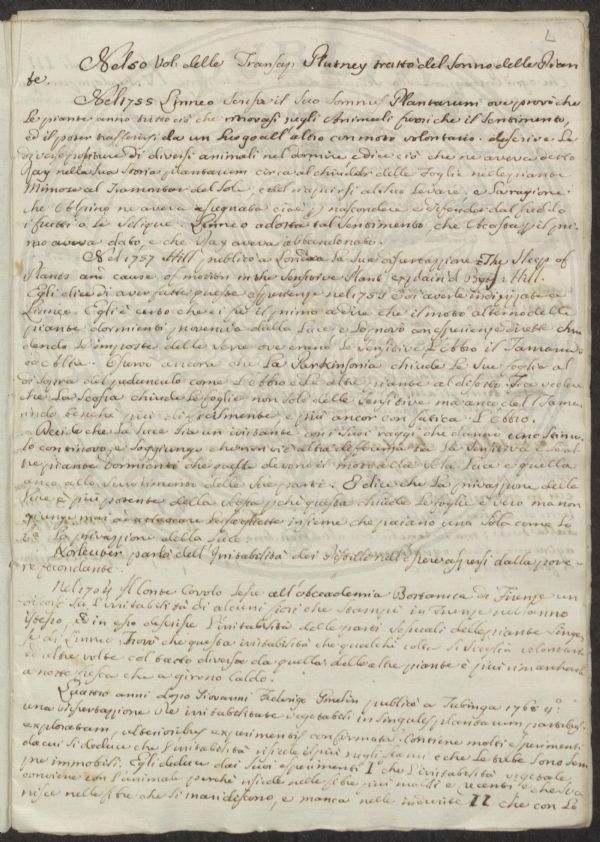 2
Nel 50 Vol. delle Transaz. Pulteney tratta del Sonno delle Pian
te.
Nel 1755 Linneo scrisse il Suo Somnus Plantarum ove provò che
le piante anno tutto ciò che trovasi negli Animali fuori che il Sentimento,
ed il poter trasferirsi da un luogo all'altro con moto volontario. descrive le
diverse positure di diversi animali nel dormire e dice ciò che ne aveva detto
Ray nella sua Storia plantarum circa al chiuder delle foglie nelle piante
Mimose al Tramontar del Sole, e del riaprirsi al suo levare, e la ragione
che ne aveva assegnata cioè p nascondere e difender dal freddo
i fiori o le Silique. Linneo adotta tal Sentimento, che l'Acosta il pri
mo aveva dato, e che Ray aveva abbandonato.
Nel 1757 Hill publicò a Londra la Sua dissertazione The Sleep of
Plants and cause of motion in the Sensitive Plant explain'd by Hill.
Egli dice di aver fatte queste esperienze nel 1755 e di averle indirizzate a
Linneo. Egli è certo che è p il primo a dire che il moto alterno delle
piante dormienti proveniva dalla Luce e lo provò con esperienze dirette chiu
dendo le imposte delle vere ove erano le Sensitive l'Abbro il Tamarindo
ed altre. Osservò ancora che la Parkinsonia chiude le Sue foglie al
di sopra del peduncolo come l'Abbro e le altre piante al disotto. Fece vedere
che la Scossa chiude le foglie non solo delle Sensitive ma anco del Tama
rindo benchè più difficilmente e più ancor con fatica l'Abbro.
Decide che la Luce sia un irritante con i suoi raggi che danno uno Stimu
lo continovo, e soggiunge che non vi è altra differenza tra la Sensitiva e le al
tre piante dormienti che queste devono il moto alla sola Luce e quella
anco allo scuotimento delle sue parti. E dice che la privazione della
Luce è più potente della scossa pchè questa chiude le foglie è vero ma non
giunge mai a attaccare le fogliette insieme che paiano una sola come fa
la privazione della Luce.
Korleuter parla dell'Irritabilità dei Pistilli nell'opera
re fecondante.
Nel 1764 il Conte Covolo lesse all'Accademia Bottanica di Firenze un
discorso su l'irritabilità di alcuni fiori che stampò in Firenze nell'anno
istesso, ed in esso descrive l'irritabilità delle parti sessuali delle piante Singe
se di Linneo. Trovò che questa irritabilità che qualche volta si sveglia volontaria
ed altre volte col tatto diversa da quella delle altre piante è più rimarchevole
a notte fresca che a giorno caldo.
Quattro anni dopo Giovanni Federigo Gmelin publicò a Tubinga 1768 4°
una dissertazione De irritabilitate vegetabili in singulis plantarum partibus
exploratam, ulterioribus experimentis confirmata. Contiene molti esperimenti
da cui si deduce che l'irritabilità risiede il più negli Stami e che le barbe sono sem
pre immobili. Egli deduce dai suoi esperimenti I che l'irritabilità vegetale
conviene con l'animale perchè risiede nelle fibre più molli e recenti e che sva
nisce nelle fibre che si inaridiscono, e manca nelle indurite II che con lo